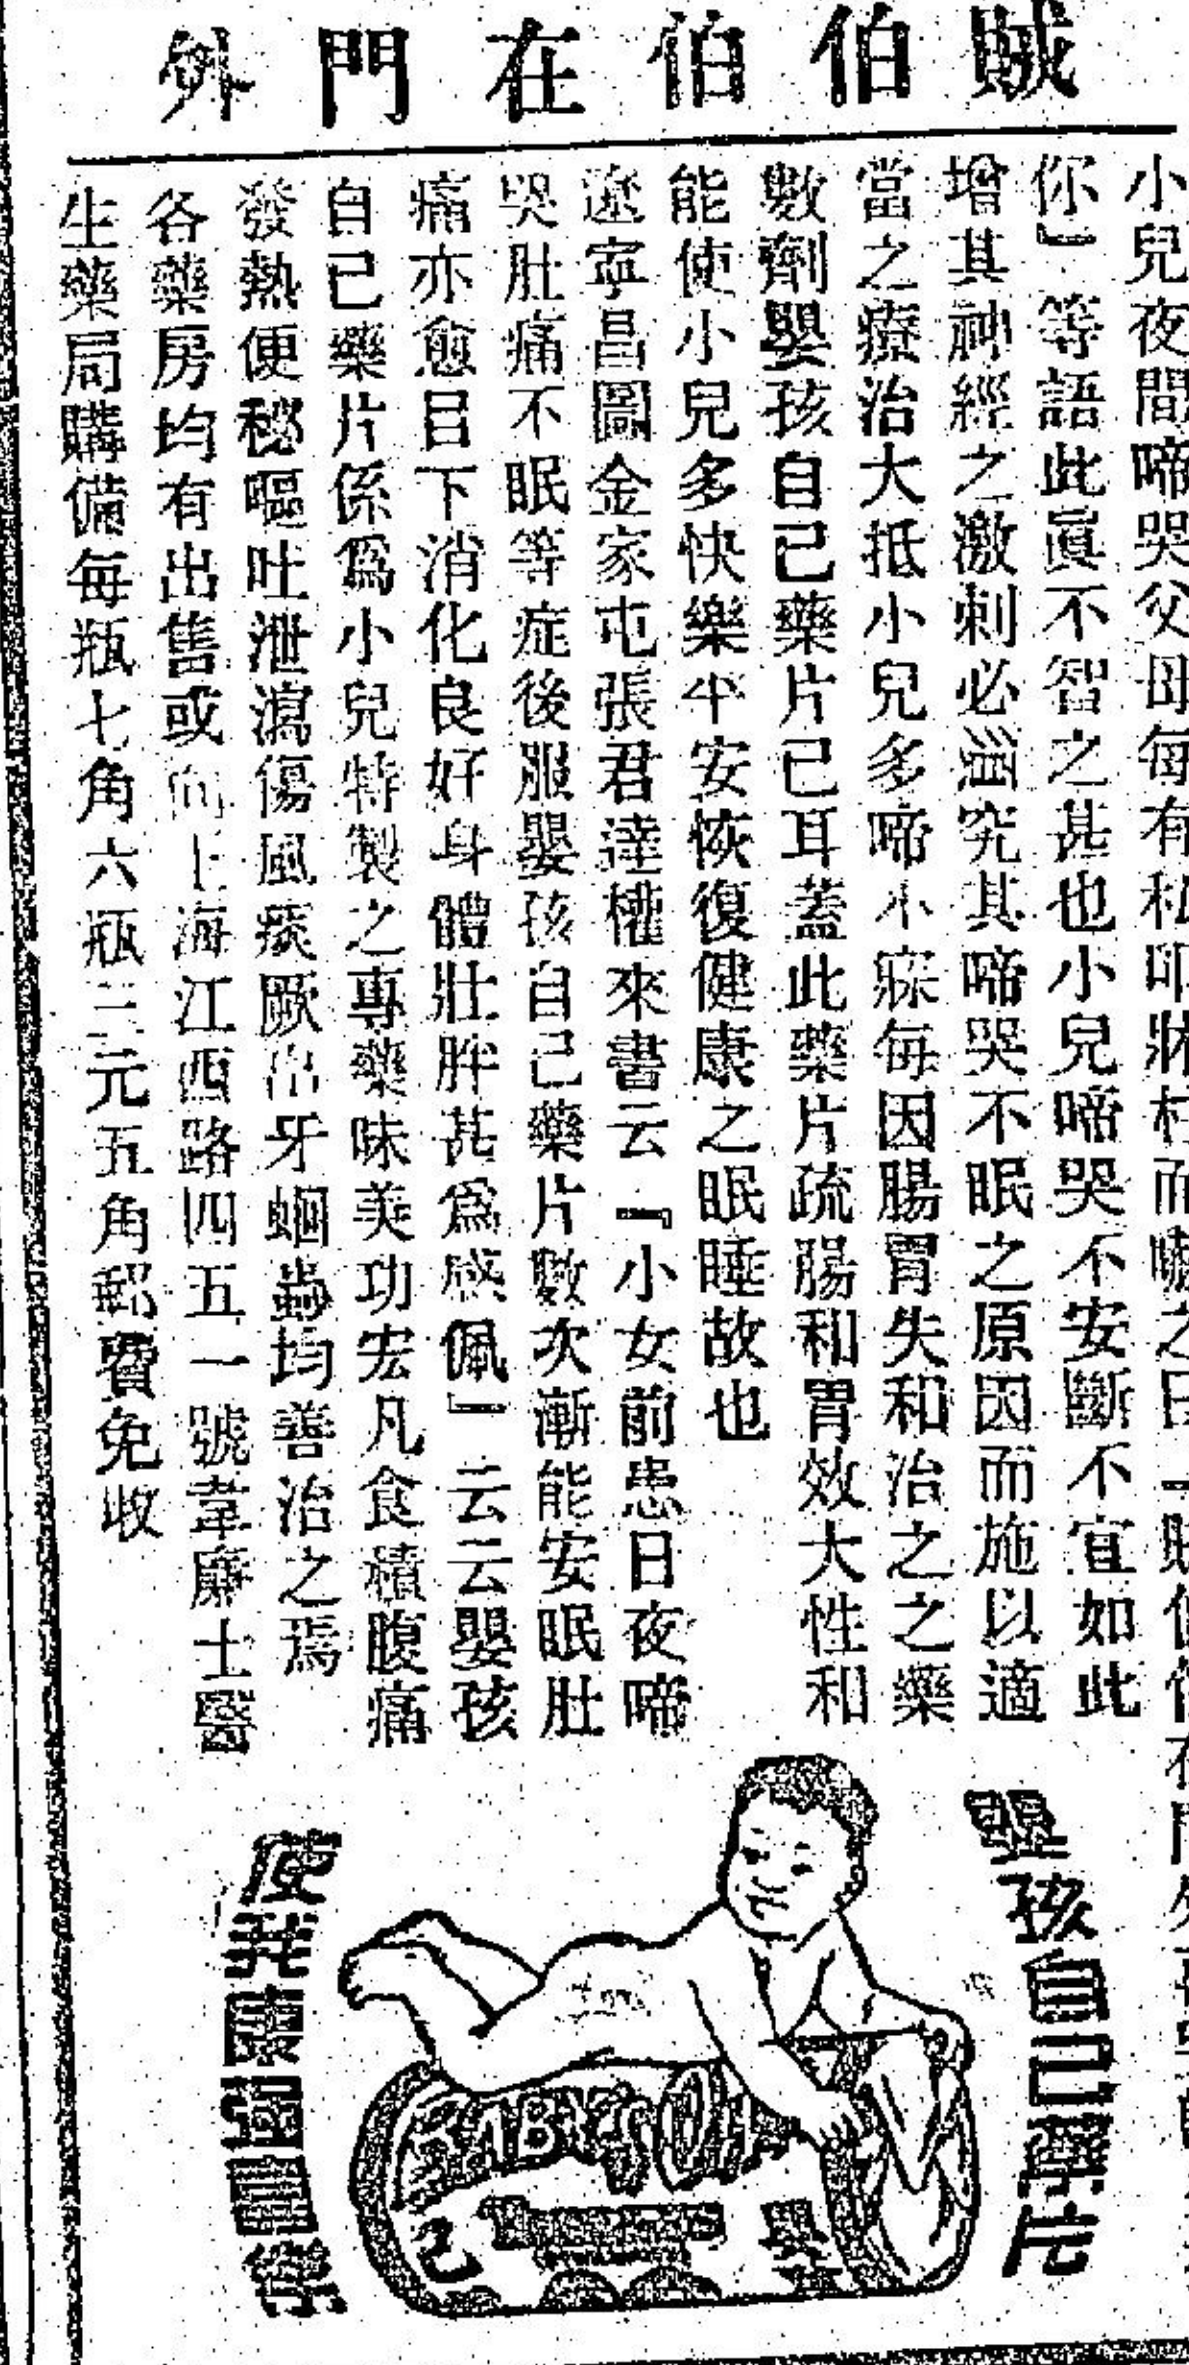 賊伯伯在門外
小兒夜間啼哭父母每有私叩牀柱而嚇之曰「賊伯伯在門外
你」等語此眞不智之甚也小兒啼哭不安斷不宜如此
增其神經之激刺必溯究其啼哭不眠之原因而施以適
當之療治大抵小兒多啼不寐每因腸胃失和治之之藥
數劑嬰孩自己藥片已耳蓋此藥片疏腸和胃效大性和
能使小兒多快樂平安恢復健康之眠睡故也
遼寧昌圖金家屯張君達權來書云『小女前患日夜啼
哭肚痛不眠等症後服嬰孩自己藥片數次漸能安眠肚
痛亦愈目下消化良好身體壯胖甚爲感佩』云云嬰孩
自己藥片係爲小兒特製之專藥味美功宏凡食積腹痛
發熱便秘嘔吐泄瀉傷風痰厥出牙蛔蟲均善治之焉
各藥房均有出售或向上海江西路四五一號韋廉士醫
生藥局購備每瓶七角六瓶三元五角郵費免收
嬰孩自己藥片
BABY'S OWN
嬰
己
使我康強喜樂